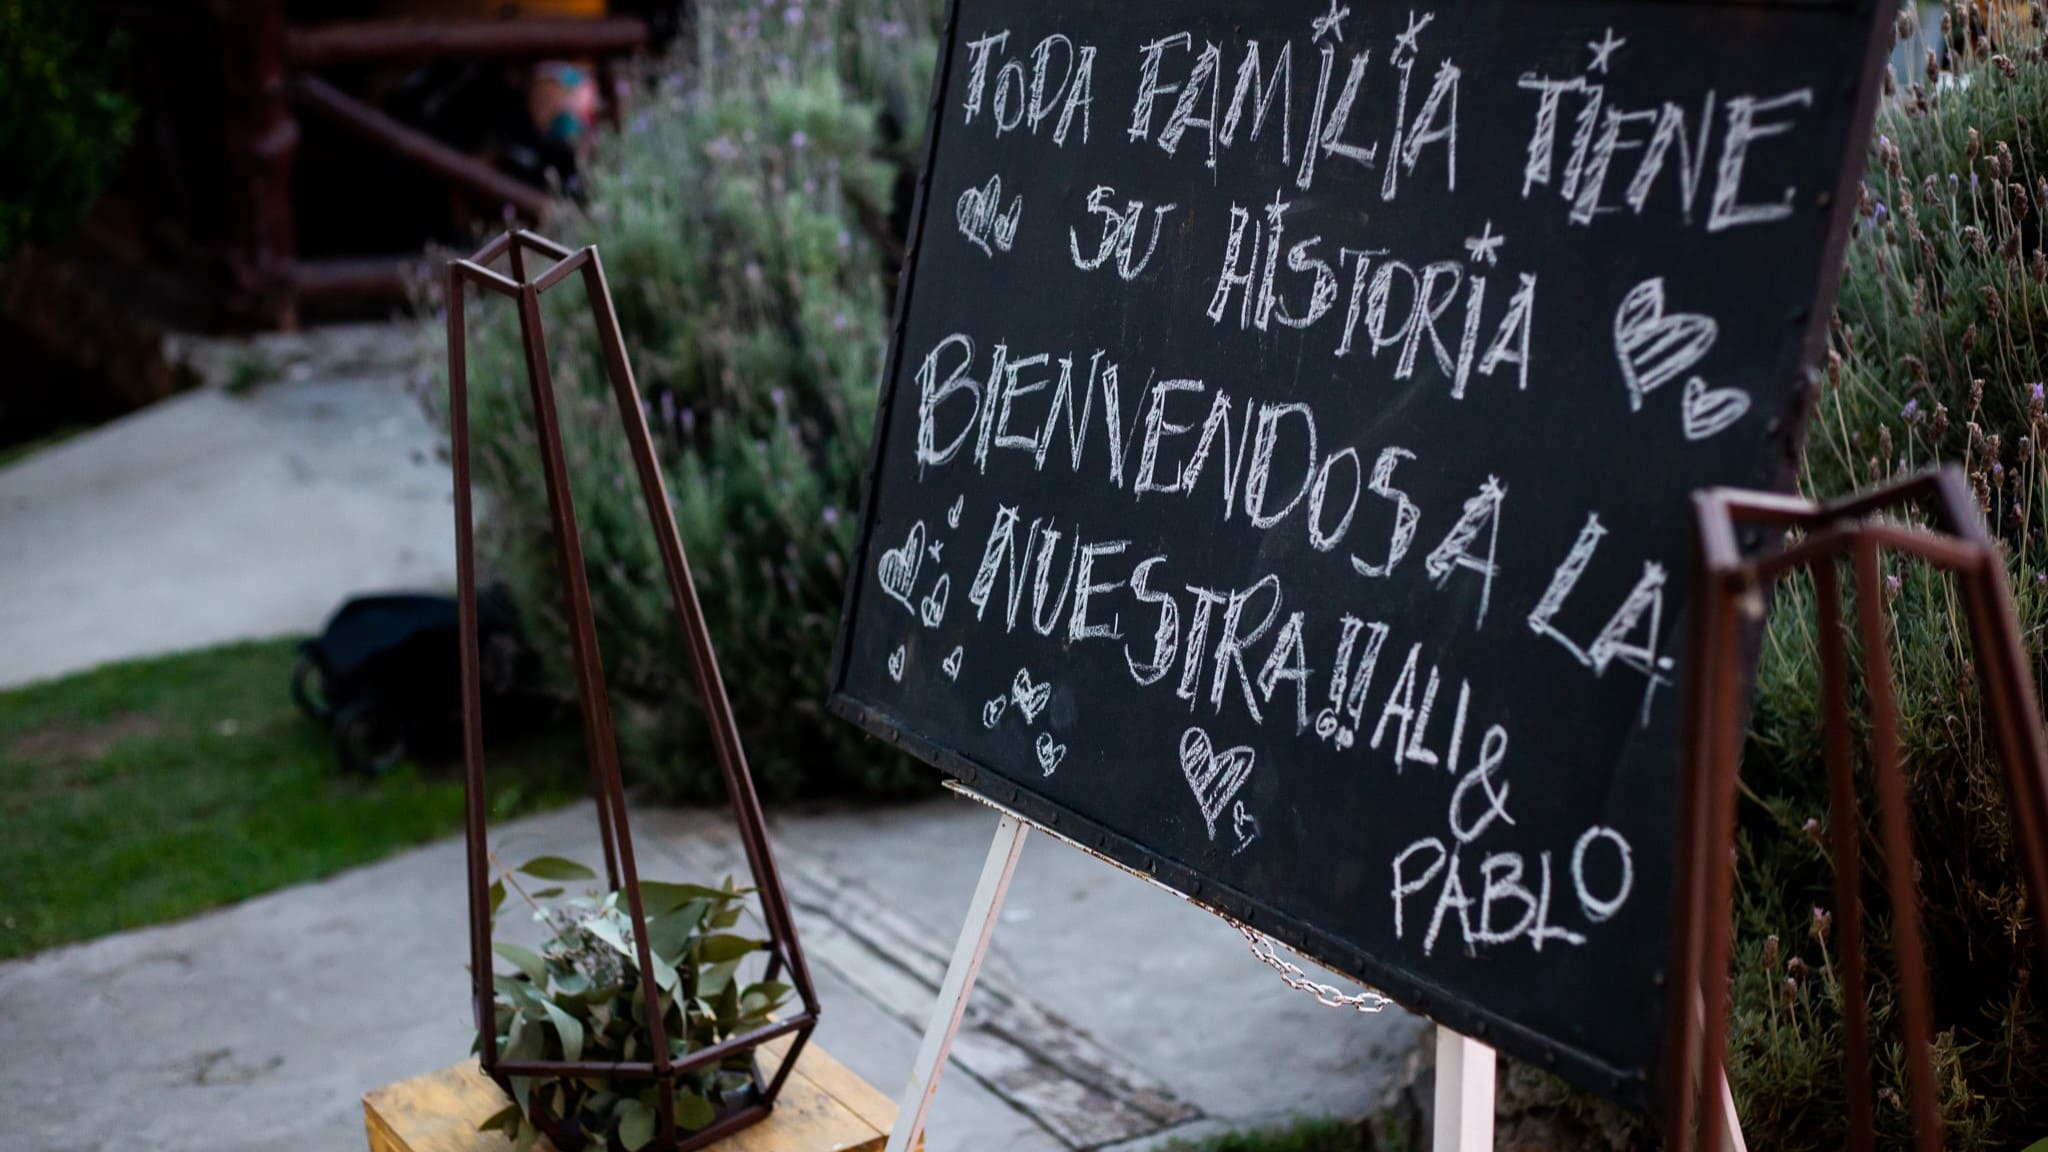 TODA FAMILIA TIENE
SU HISTORIA
BIENVENDOS A LA
NUESTRA!! ALI
&
PABLO